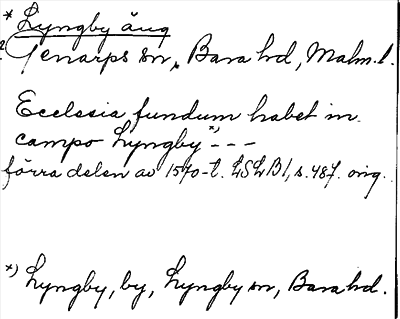 * Lyngby äng
Genarps sn, Bara hd, Malm. l.
Ecclesia fundum habet in
campo Lyngby *) - - -
förra delen av 1570-t. LSLB 1, s. 487. orig.
*) Lyngby, by, Lyngby sn, Bara hd.